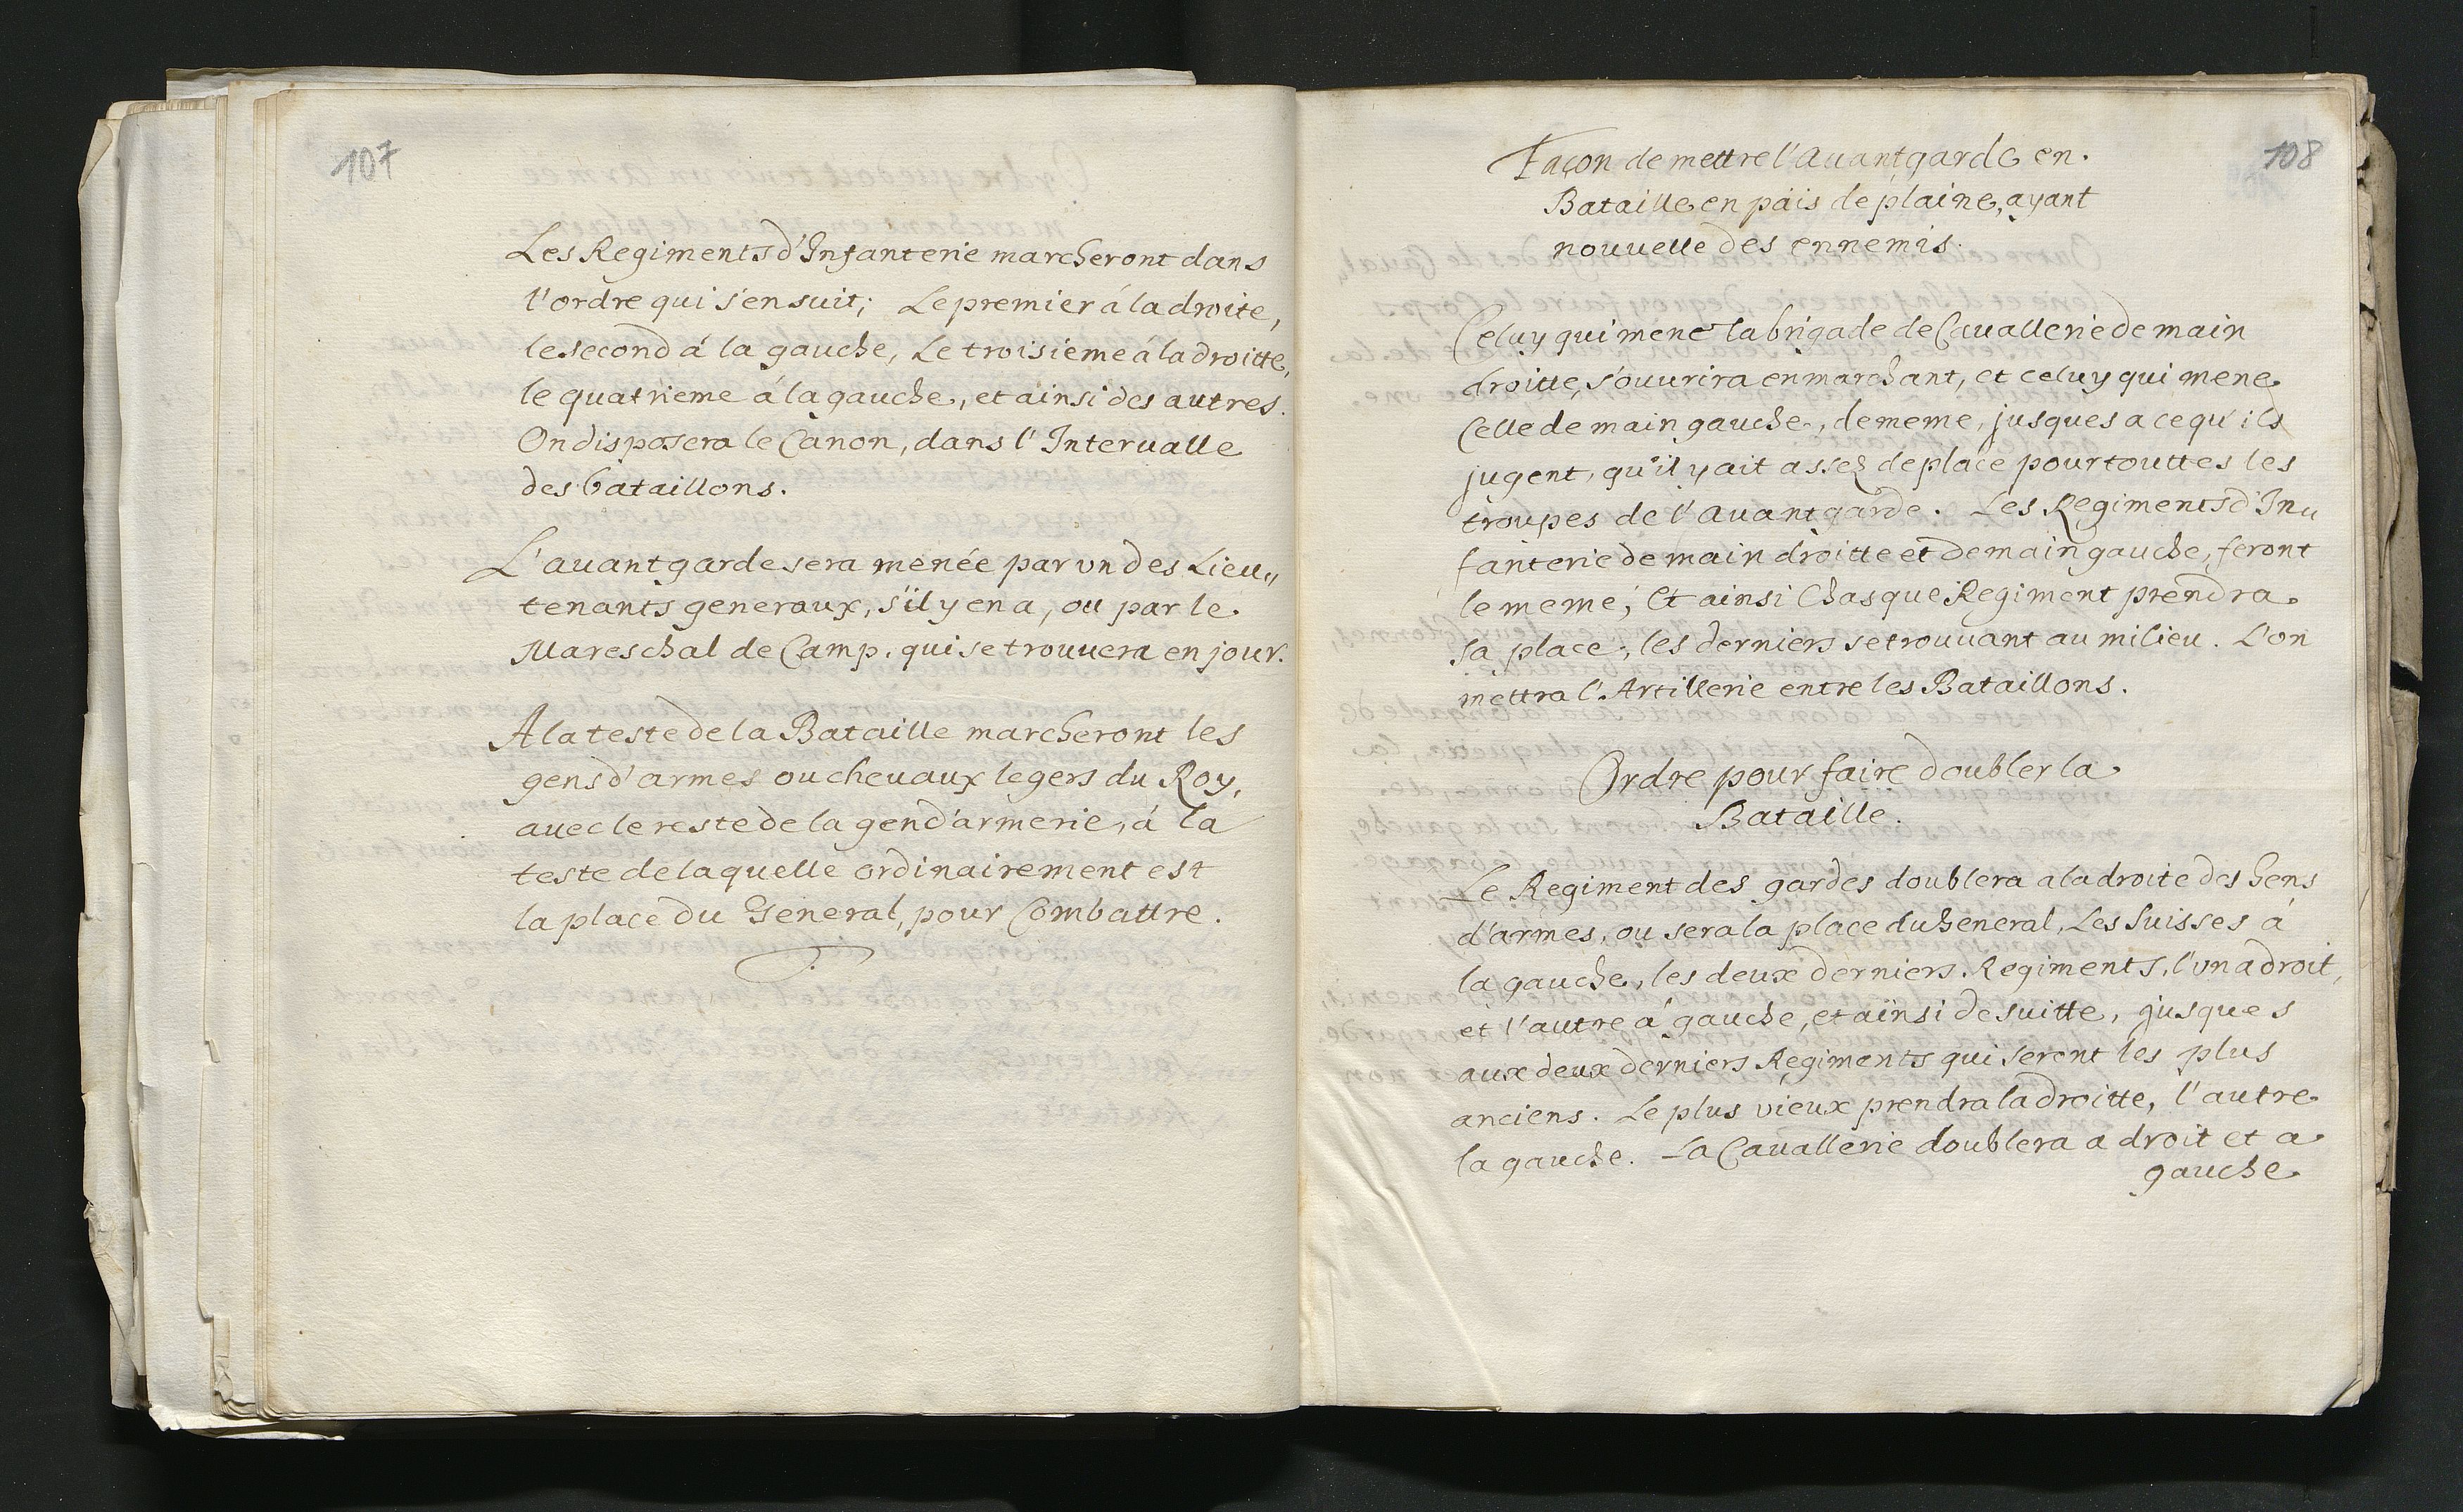 107
Les Regiments d'Infanterie marcheront dans
l'ordre qui s'ensuit; Le premier á la droite,
le second á la gauche, Le troisieme á la droitte,
le quatrieme á la gauche, et ainsi des autres.
On disposera le Canon, dans l'Interualle
des bataillons.
L'auantgarde sera menée par vn des Lieu„
tenants generaux, s'il y en a, ou par le
Mareschal de Camp. qui se trouuera en jour.
A la teste de la Bataille marcheront les
gens d'armes ou cheuaux legers du Roy,
auec le reste de la gend'armerie, á la
teste de laquelle ordinairement est
la place du General, pour Combattre.
108
Façon de mettre l'auantgarde en
Bataille en païs de plaine, ayant
nouuelle des ennemis.
Celuy qui mene la brigade de Cauallerie de main
droitte, s'ouurira en marchant, et celuy qui mene
Celle de main gauche, de meme, jusques a ce qu'ils
jugent, qu'il y ait assez de place pour touttes les
troupes de l'auantgarde. Les Regiments d'In„
fanterie de main droitte et de main gauche, feront
le meme; Et ainsi Chasque Regiment prendra
sa place, les derniers se trouuant au milieu. L'on
mettra l'Artillerie entre les Bataillons.
Ordre pour faire doubler la
Bataille.
Le Regiment des gardes doublera a la droite des Gens
d'armes, ou sera la place du General, Les Suisses á
la gauche, les deux derniers Regiments, l'vn a droit,
et l'autre á gauche, et aïnsi de suitte, jusques
aux deux derniers Regiments qui seront les plus
anciens. Le plus vieux prendra la droitte, l'autre
la gauche. La Cauallerie doublera a droit et a
gauche